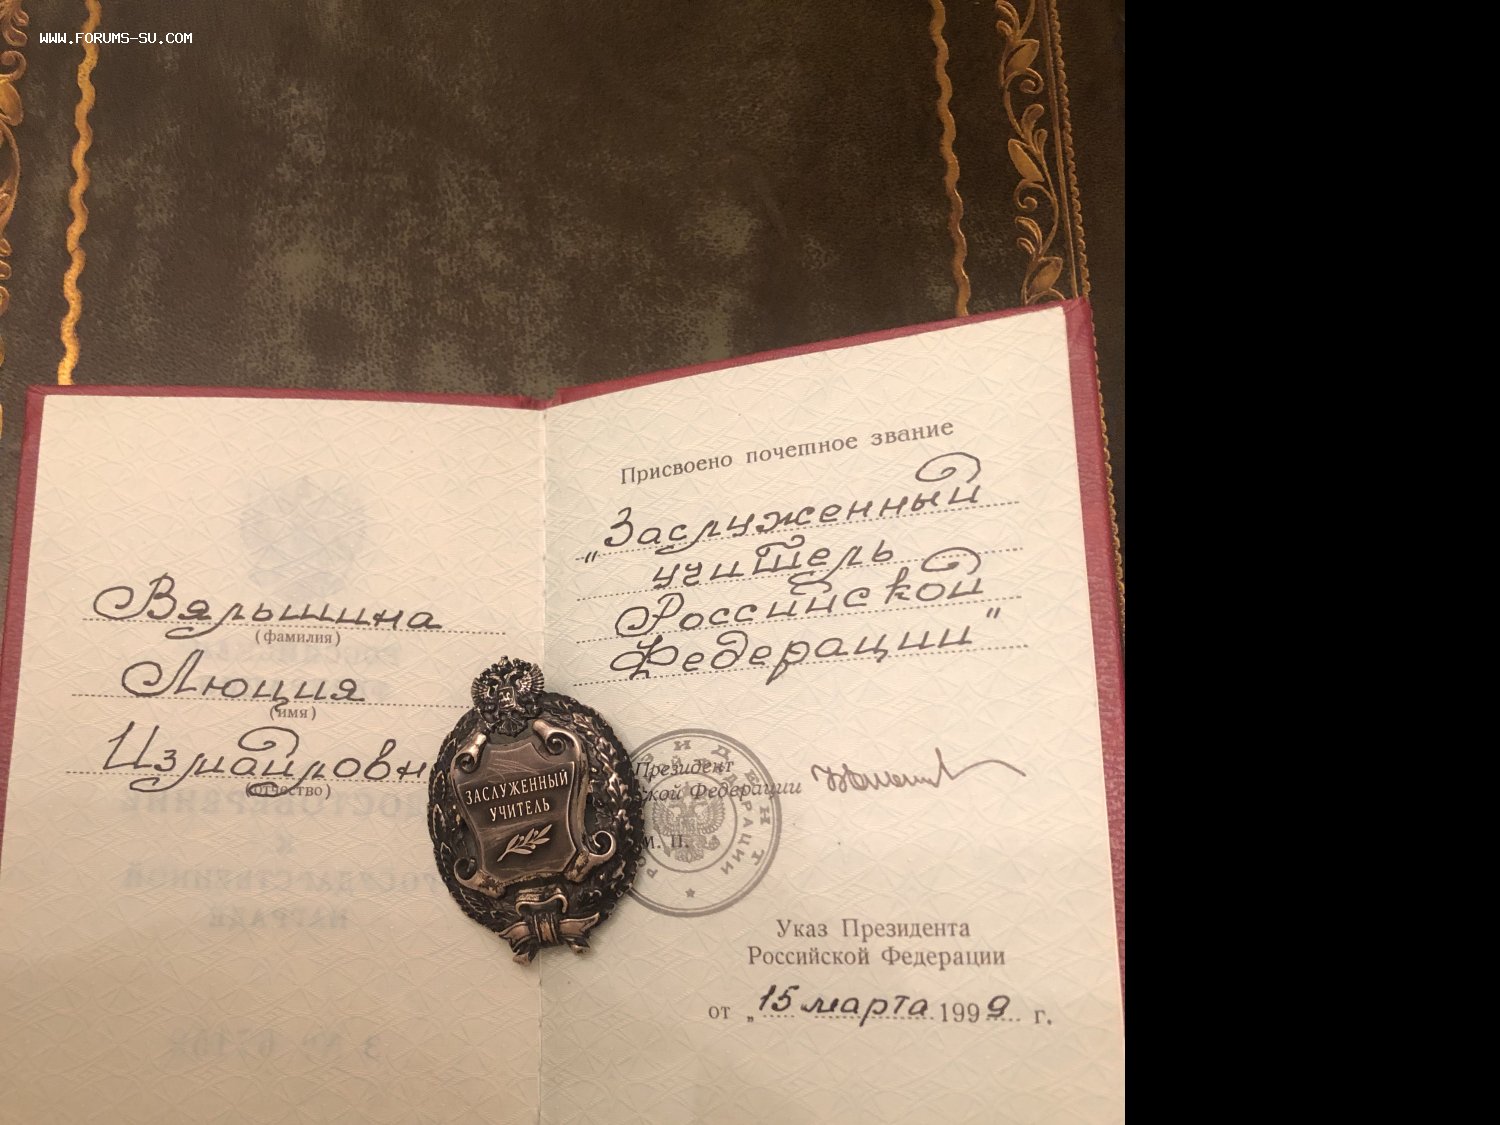 WWW.FORUMS-SU.COM
Вяльшина
(фамилия)
Люция
(имя)
Измаиловн
(отчество)
ЗАСЛУЖЕННЫЙ
УЧИТЕЛЬ
Присвоено почетное звание
„Заслуженный
учитель
Российской
Федерации"
Президент
кой Федерации
М. П.
Указ Президента
Российской Федерации
от „15 марта 1999 г.